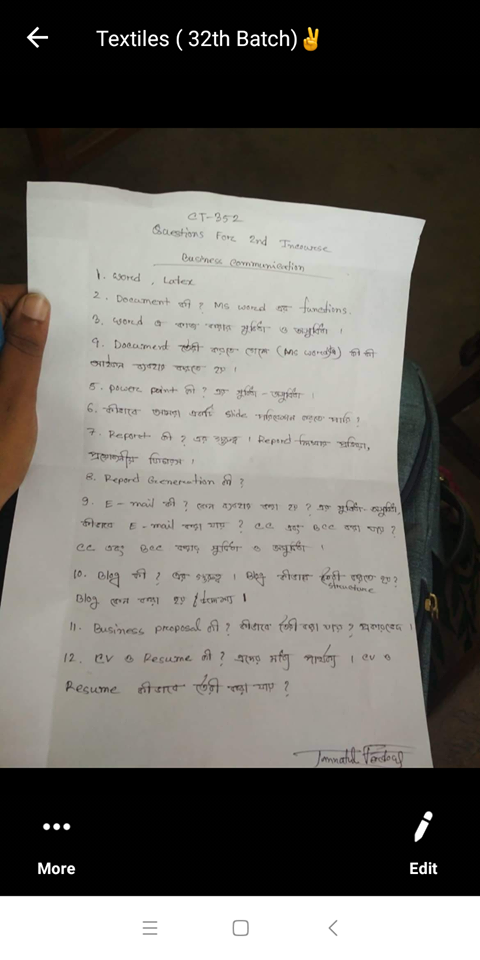 Textiles ( 32th Batch)✌
CT-352
Questions For 2nd Incourse
Business Communication
1. Word, Latex
2. Document কী? MS word এর functions.
3. Word এ কাজ করার সুবিধা ও অসুবিধা।
4. Document তৈরী করতে গেলে (MS word) কী কী
ব্যবহার করতে হয়।
5. Power point কী? এর সুবিধা - অসুবিধা।
6. কীভাবে আমরা একটি slide করতে পারি?
7. Report কী? এর। Report লিখার
8. Report Generation কী?
9. E-mail কী? কেন ব্যবহার করা হয়? এর সুবিধা-অসুবিধা,
কীভাবে E-mail করা যায়? CC এবং BCC করা যায়?
CC এবং BCC করার সুবিধা ও অসুবিধা।
10. Blog কী? এর। Blog কীভাবে তৈরী করতে হয়?
structure
Blog কেন করা হয়
11. Business proposal কী? কীভাবে তৈরী করা যায়?
12. CV ও Resume কী? এদের মধ্যে পার্থক্য। CV ও
Resume কীভাবে তৈরী করা যায়?
More
Edit